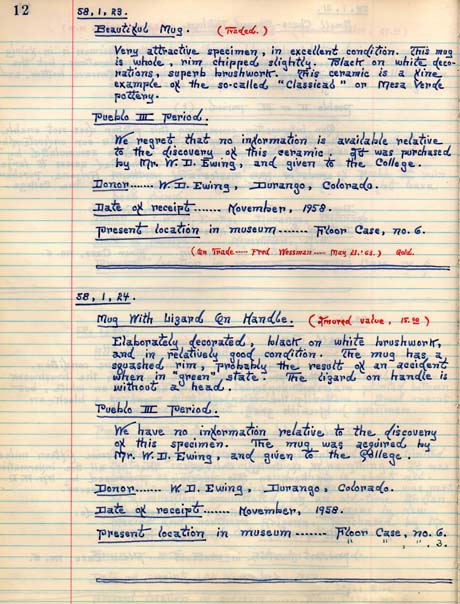 12
58, 1, 23.
Beautiful Mug. (Traded.)
Very attractive specimen, in excellent condition. This mug
is whole, rim chipped slightly. Black on white deco-
rations, superb brushwork. This ceramic is a fine
example of the so-called "Classical" or Mesa Verde
pottery.
Pueblo III Period.
We regret that no information is available relative
to the discovery of this ceramic. It was purchased
by Mr. W. D. Ewing, and given to the College.
Donor...... W. D. Ewing, Durango, Colorado.
Date of receipt....... November, 1958.
Present location in museum ------- Floor Case, no. 6.
(On Trade ---- Fred Wessman ---- May 21.'65.) Gold.
58, 1, 24.
Mug With Lizard On Handle. (Insured value, 15.00)
Elaborately decorated, black on white brushwork,
and in relatively good condition. The mug has a
squashed rim, probably the result of an accident
when in "green" state. The lizard on handle is
without a head.
Pueblo III Period.
We have no information relative to the discovery
of this specimen. The mug was acquired by
Mr. W. D. Ewing, and given to the College.
Donor...... W. D. Ewing, Durango, Colorado.
Date of receipt....... November, 1958.
Present location in museum ------- Floor Case, no. 6.
" " , " , 3.